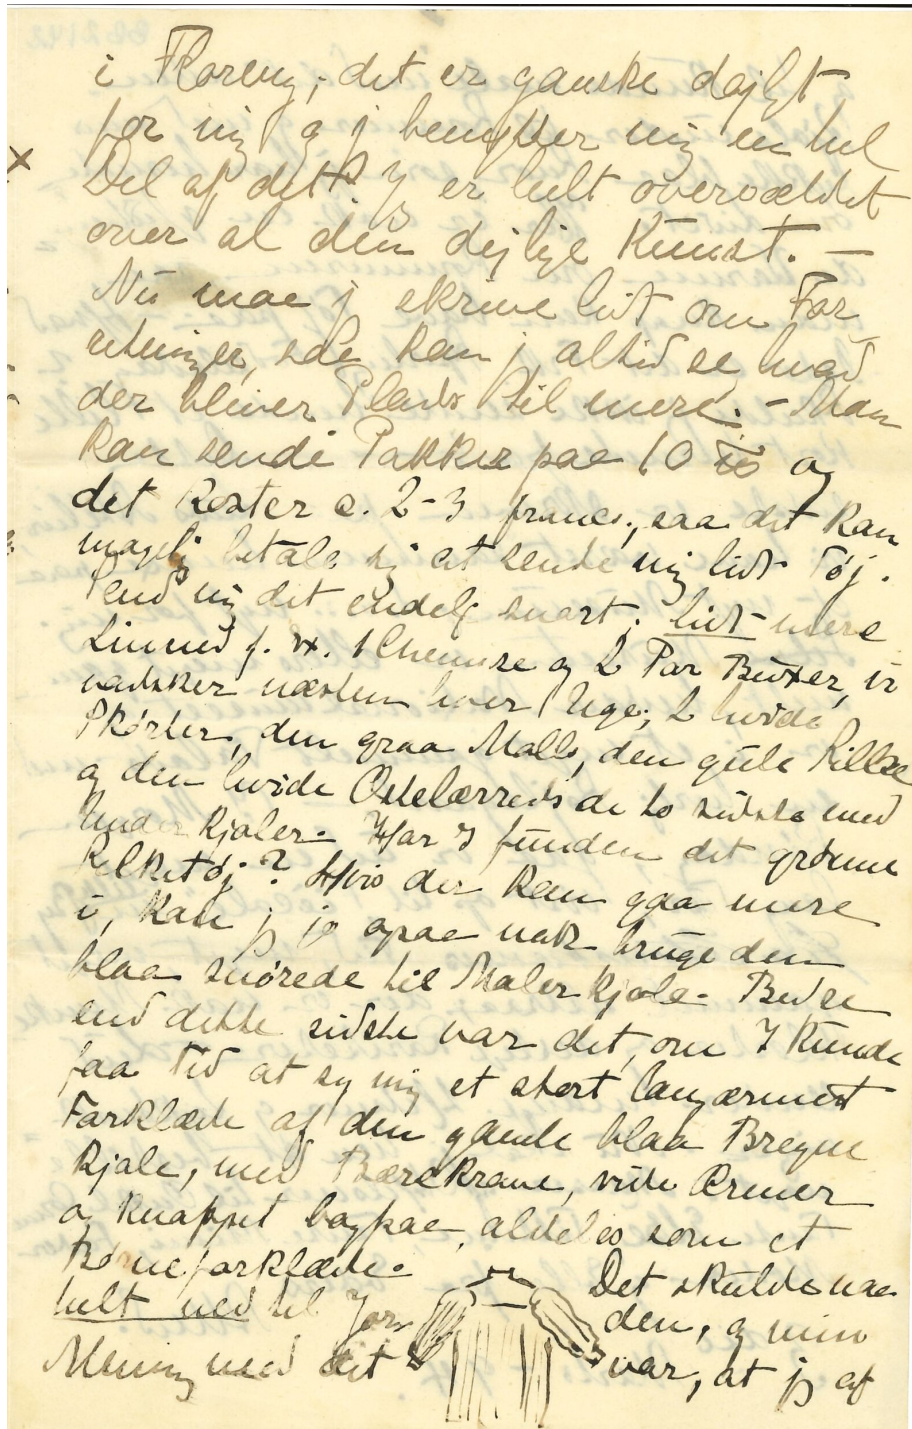 i Florenz; det er ganske dejlgt
for mig og j benytter mig en hel
Del af det. Jg er helt overvældet
over al den dejlige Kunst. —
Nu maa j skrive lidt om For
retninger, saa kan j altid se, hvad
der bliver Plads til mere. - Man
kan sende Pakker paa 10 og
det koster c. 2-3 francs., saa det kan
magelig betale sig at sende mig lidt Tøj.
Send mig det endelig snart; lidt mere
Linned f. Ex. 1 Chemise og 2 Par Buxer, vi
vadsker næsten hver Uge; 2 hvide
Skörter, den graa Malle, den gule
og den hvide Ostelærreds de to sidste med
Underkjoler. Har I funden det grønne
? Hvis der kan gaa mere
i, kan jg jo ogsaa nok bruge den
blaa snørede til Malerkjole. Bedre
end dette sidste var det, om I kunde
faa Tid at sy mig et stort langærmet
Forklæde af den gamle blaa Bregne
Kjole, med Bærekrave, vide Ærmer
og knappet bagpaa, aldeles som et
Børneforklæde. Det skulde naa
helt ned til Jorden, og min
Mening med det var, at jg af